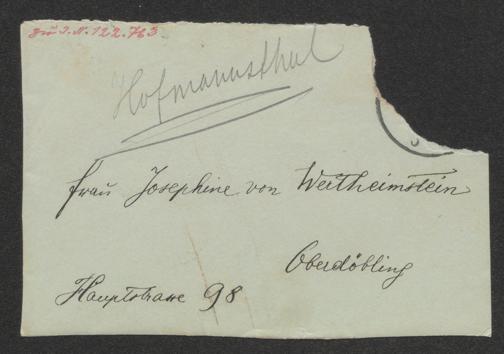 zu I.N. 122.763
Hofmannsthal
Frau Josephine von Wertheimstein
Oberdöbling
Hauptstrasse 98